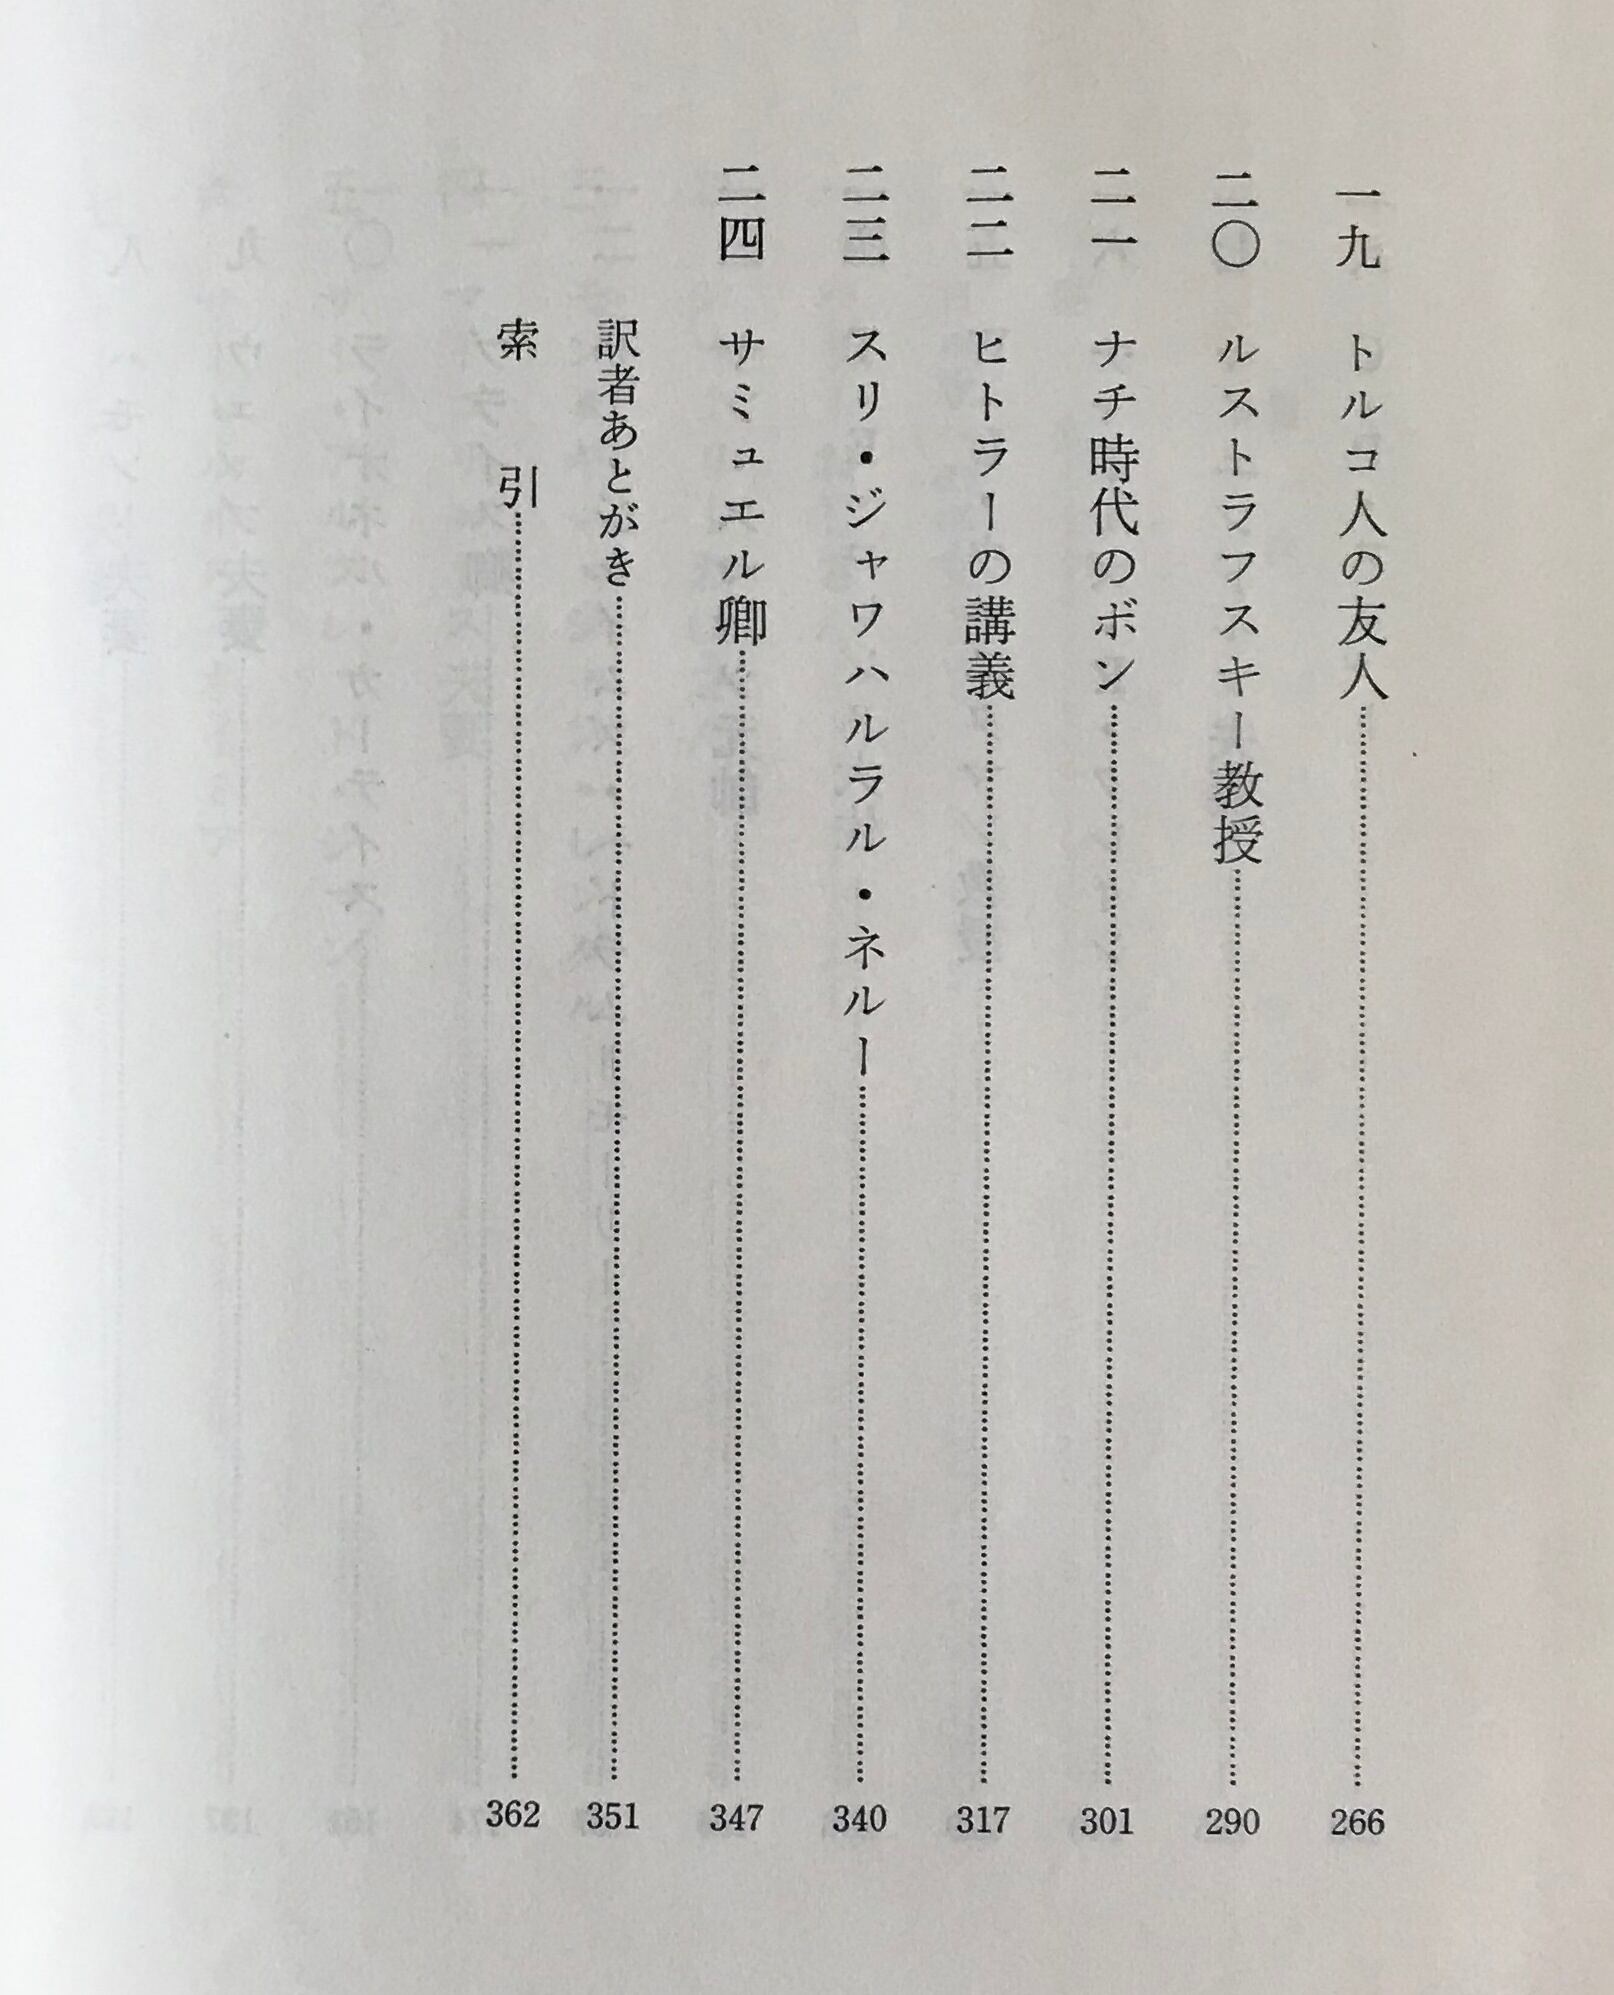 一九 トルコ人の友人……266
二〇 ルストラフスキー教授……290
二一 ナチ時代のボン……301
二二 ヒトラーの講義……317
二三 スリ・ジャワハルラル・ネルー……340
二四 サミュエル卿……347
訳者あとがき……351
索引……362